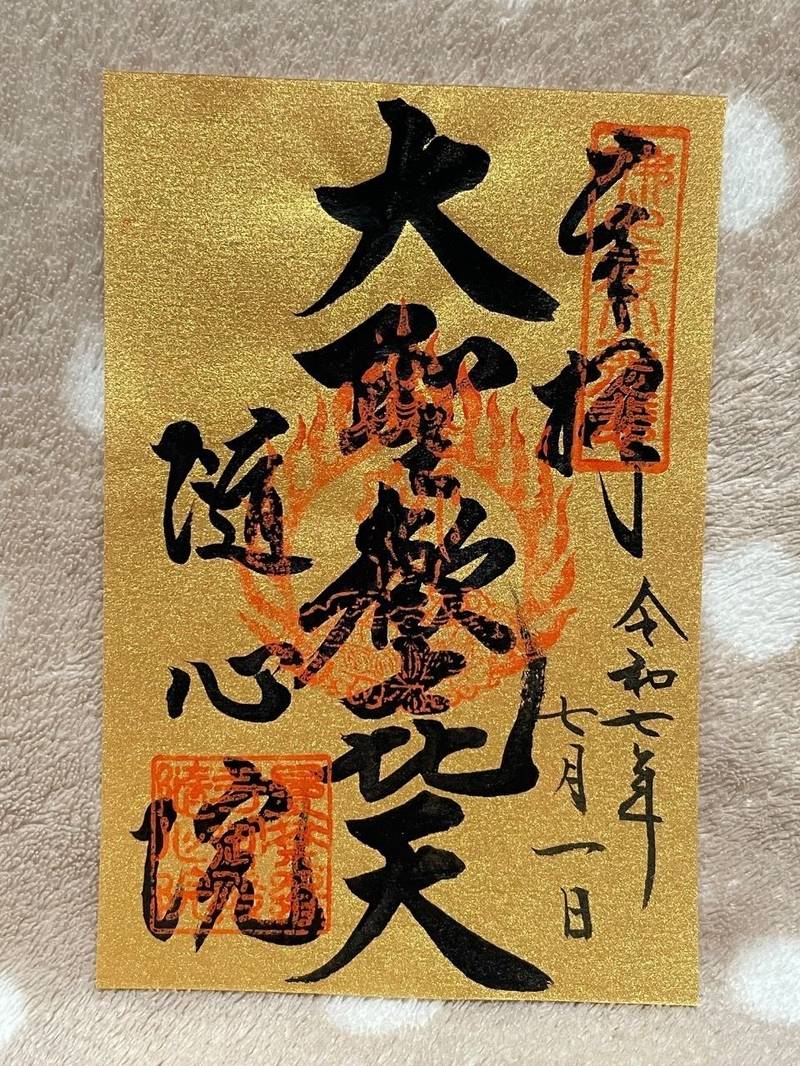 奉拝
令和七年
七月一日
大聖歡喜天
随心院
隨心院